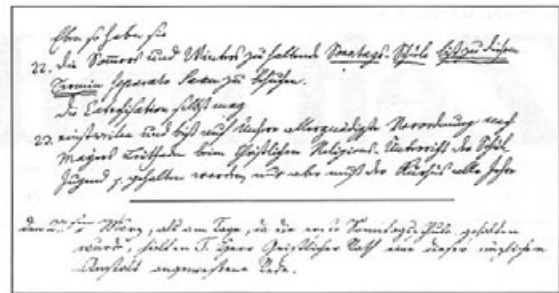 Eben so haben sie
22. die Sommers und Winters zu haltende Sonntags-Schule bis zu diesem
Termin separato zu besuchen.
Die Catechisation selbst mag
23. einstweilen und bis auf Unsere allergnädigste Verordnung nach
Mayers Leitfaden beim Christlichen Religions-Unterricht der Schul
Jugend gehalten werden, nur aber muß der Kursus alle Jahre
den März, als am Tage, da die erste Sonntagsschule gehalten
wurde, hielten T. Herr Geistlicher Rath eine dieser nüzlichen
Anstalt angemessene Rede.